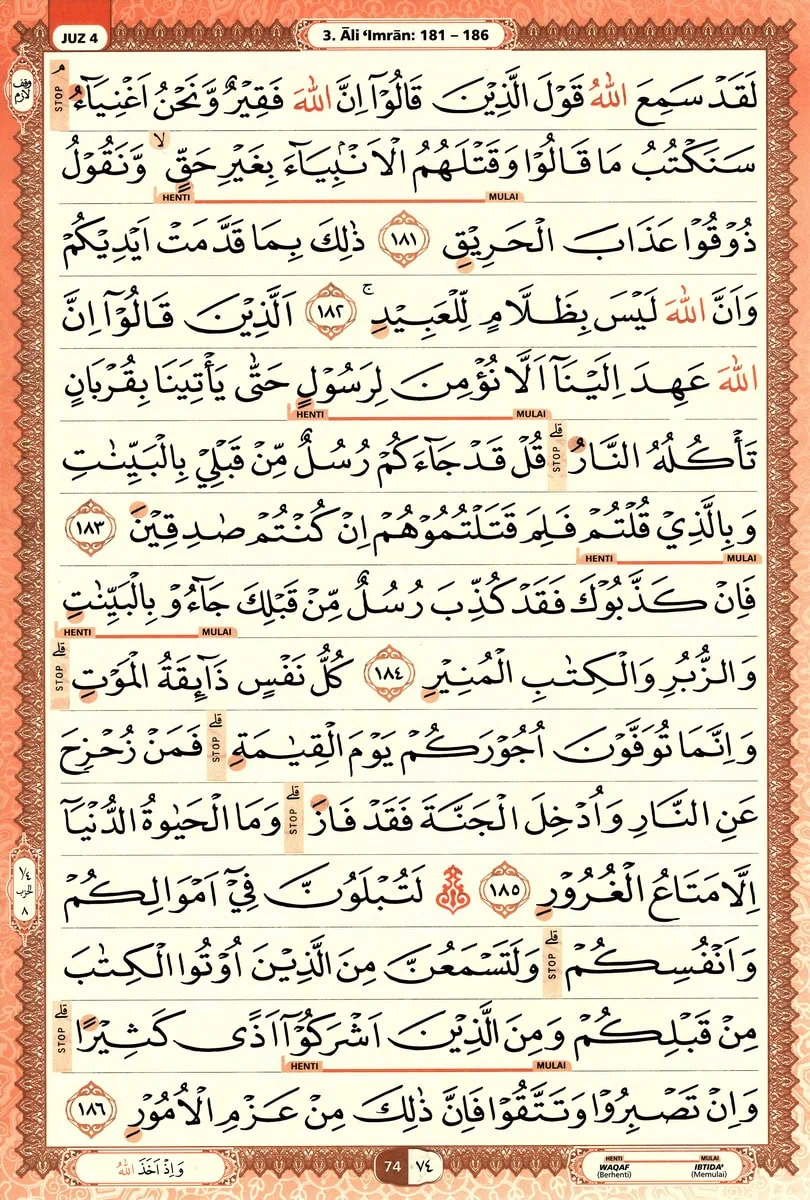 JUZ 4
3. Āli 'Imrān: 181 – 186
وقف لازم
لَقَدْ سَمِعَ اللّٰهُ قَوْلَ الَّذِيْنَ قَالُوْٓا اِنَّ اللّٰهَ فَقِيْرٌ وَّنَحْنُ اَغْنِيَاۤءُ ۘ STOP
سَنَكْتُبُ مَا قَالُوْا وَقَتْلَهُمُ الْاَنْۢبِيَاۤءَ بِغَيْرِ حَقٍّۙ وَّنَقُوْلُ
HENTI MULAI
ذُوْقُوْا عَذَابَ الْحَرِيْقِ ١٨١ ذٰلِكَ بِمَا قَدَّمَتْ اَيْدِيْكُمْ
وَاَنَّ اللّٰهَ لَيْسَ بِظَلَّامٍ لِّلْعَبِيْدِۚ ١٨٢ اَلَّذِيْنَ قَالُوْٓا اِنَّ
اللّٰهَ عَهِدَ اِلَيْنَآ اَلَّا نُؤْمِنَ لِرَسُوْلٍ حَتّٰى يَأْتِيَنَا بِقُرْبَانٍ
HENTI MULAI
تَأْكُلُهُ النَّارُ ۗ STOP قُلْ قَدْ جَاۤءَكُمْ رُسُلٌ مِّنْ قَبْلِيْ بِالْبَيِّنٰتِ
وَبِالَّذِيْ قُلْتُمْ فَلِمَ قَتَلْتُمُوْهُمْ اِنْ كُنْتُمْ صٰدِقِيْنَ ١٨٣
HENTI MULAI
فَاِنْ كَذَّبُوْكَ فَقَدْ كُذِّبَ رُسُلٌ مِّنْ قَبْلِكَ جَاۤءُوْ بِالْبَيِّنٰتِ
HENTI MULAI
وَالزُّبُرِ وَالْكِتٰبِ الْمُنِيْرِ ١٨٤ كُلُّ نَفْسٍ ذَاۤىِٕقَةُ الْمَوْتِۗ STOP
وَاِنَّمَا تُوَفَّوْنَ اُجُوْرَكُمْ يَوْمَ الْقِيٰمَةِ ۗ STOP فَمَنْ زُحْزِحَ
عَنِ النَّارِ وَاُدْخِلَ الْجَنَّةَ فَقَدْ فَازَ ۗ STOP وَمَا الْحَيٰوةُ الدُّنْيَآ
اِلَّا مَتَاعُ الْغُرُوْرِ ١٨٥ لَتُبْلَوُنَّ فِيْٓ اَمْوَالِكُمْ
١/٤ الحزب ٨
وَاَنْفُسِكُمْۗ STOP وَلَتَسْمَعُنَّ مِنَ الَّذِيْنَ اُوْتُوا الْكِتٰبَ
مِنْ قَبْلِكُمْ وَمِنَ الَّذِيْنَ اَشْرَكُوْٓا اَذًى كَثِيْرًاۗ STOP
HENTI MULAI
وَاِنْ تَصْبِرُوْا وَتَتَّقُوْا فَاِنَّ ذٰلِكَ مِنْ عَزْمِ الْاُمُوْرِ ١٨٦
وَاِذْ اَخَذَ اللّٰهُ
74 ٧٤
HENTI MULAI
WAQAF IBTIDA'
(Berhenti) (Memulai)